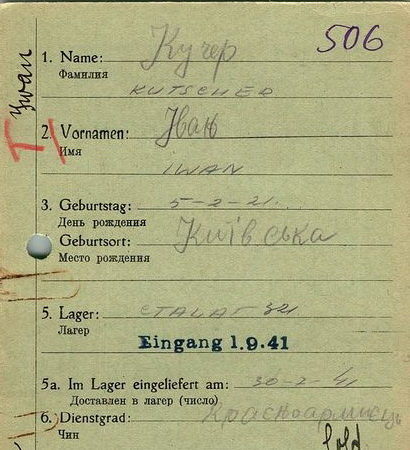 506
Iwan
1. Name: Кучер
Фамилия
KUTSCHER
2. Vornamen: Іван
Имя
IWAN
3. Geburtstag: 5-2-21.
День рождения
Geburtsort: Київська
Место рождения
5. Lager: STALAT 321
Лагерь
Eingang 1.9.41
5a. Im Lager eingeliefert am: 30-2-41
Доставлен в лагерь (число)
6. Dienstgrad: Красноармиець
Чин
Sold.